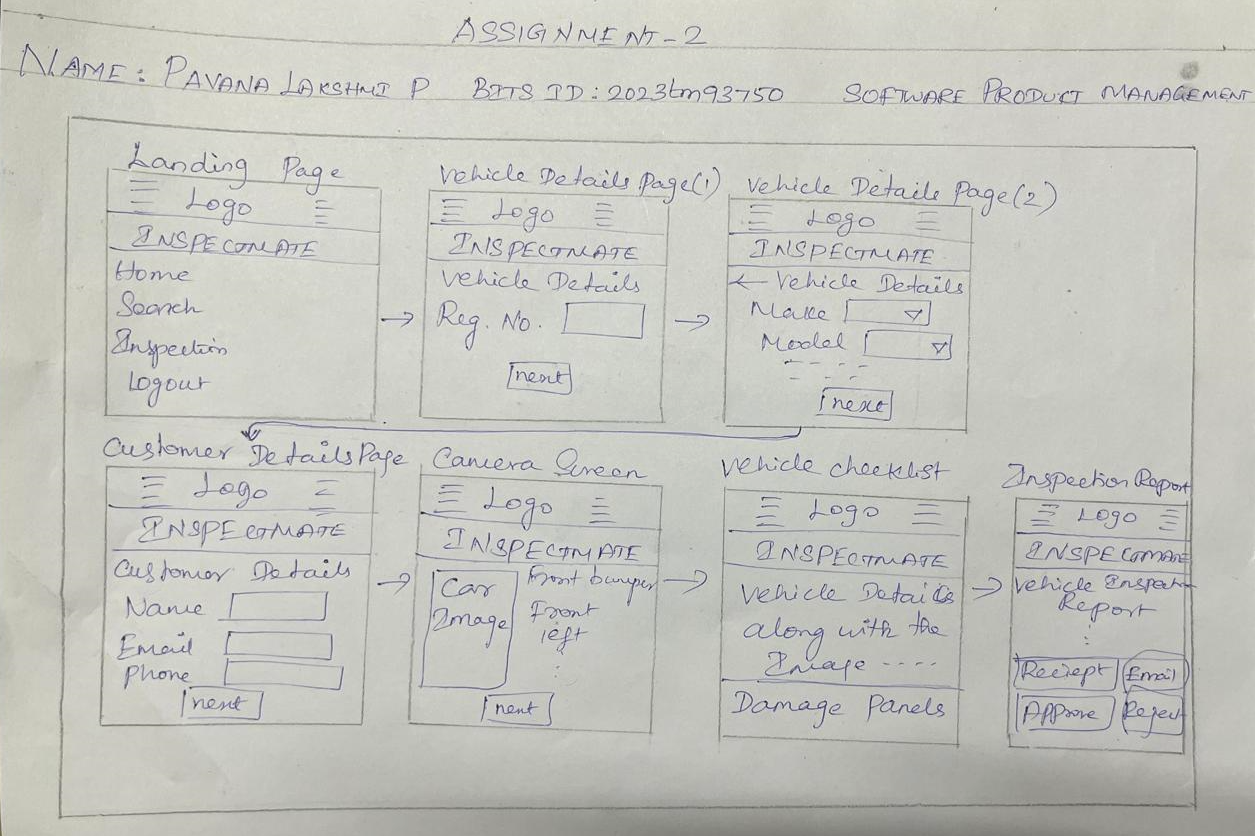 ASSIGNMENT-2
NAME: PAVANA LAKSHMI P BITS ID: 2023tm93750 SOFTWARE PRODUCT MANAGEMENT
Landing Page
Logo
INSPECTMATE
Home
Search
Inspection
Logout
Vehicle Details Page(1)
Logo
INSPECTMATE
Vehicle Details
Reg. No.
next
Vehicle Details Page(2)
Logo
INSPECTMATE
← Vehicle Details
Make
Model
next
Customer Details Page
Logo
INSPECTMATE
Customer Details
Name
Email
Phone
next
Camera Screen
Logo
INSPECTMATE
Car
Image
Front bumper
Front
left
next
Vehicle checklist
Logo
INSPECTMATE
Vehicle Details
along with the
Image ----
Damage Panels
Inspection Report
Logo
INSPECTMATE
Vehicle Inspecti
Report
Reciept Email
Approve Reject